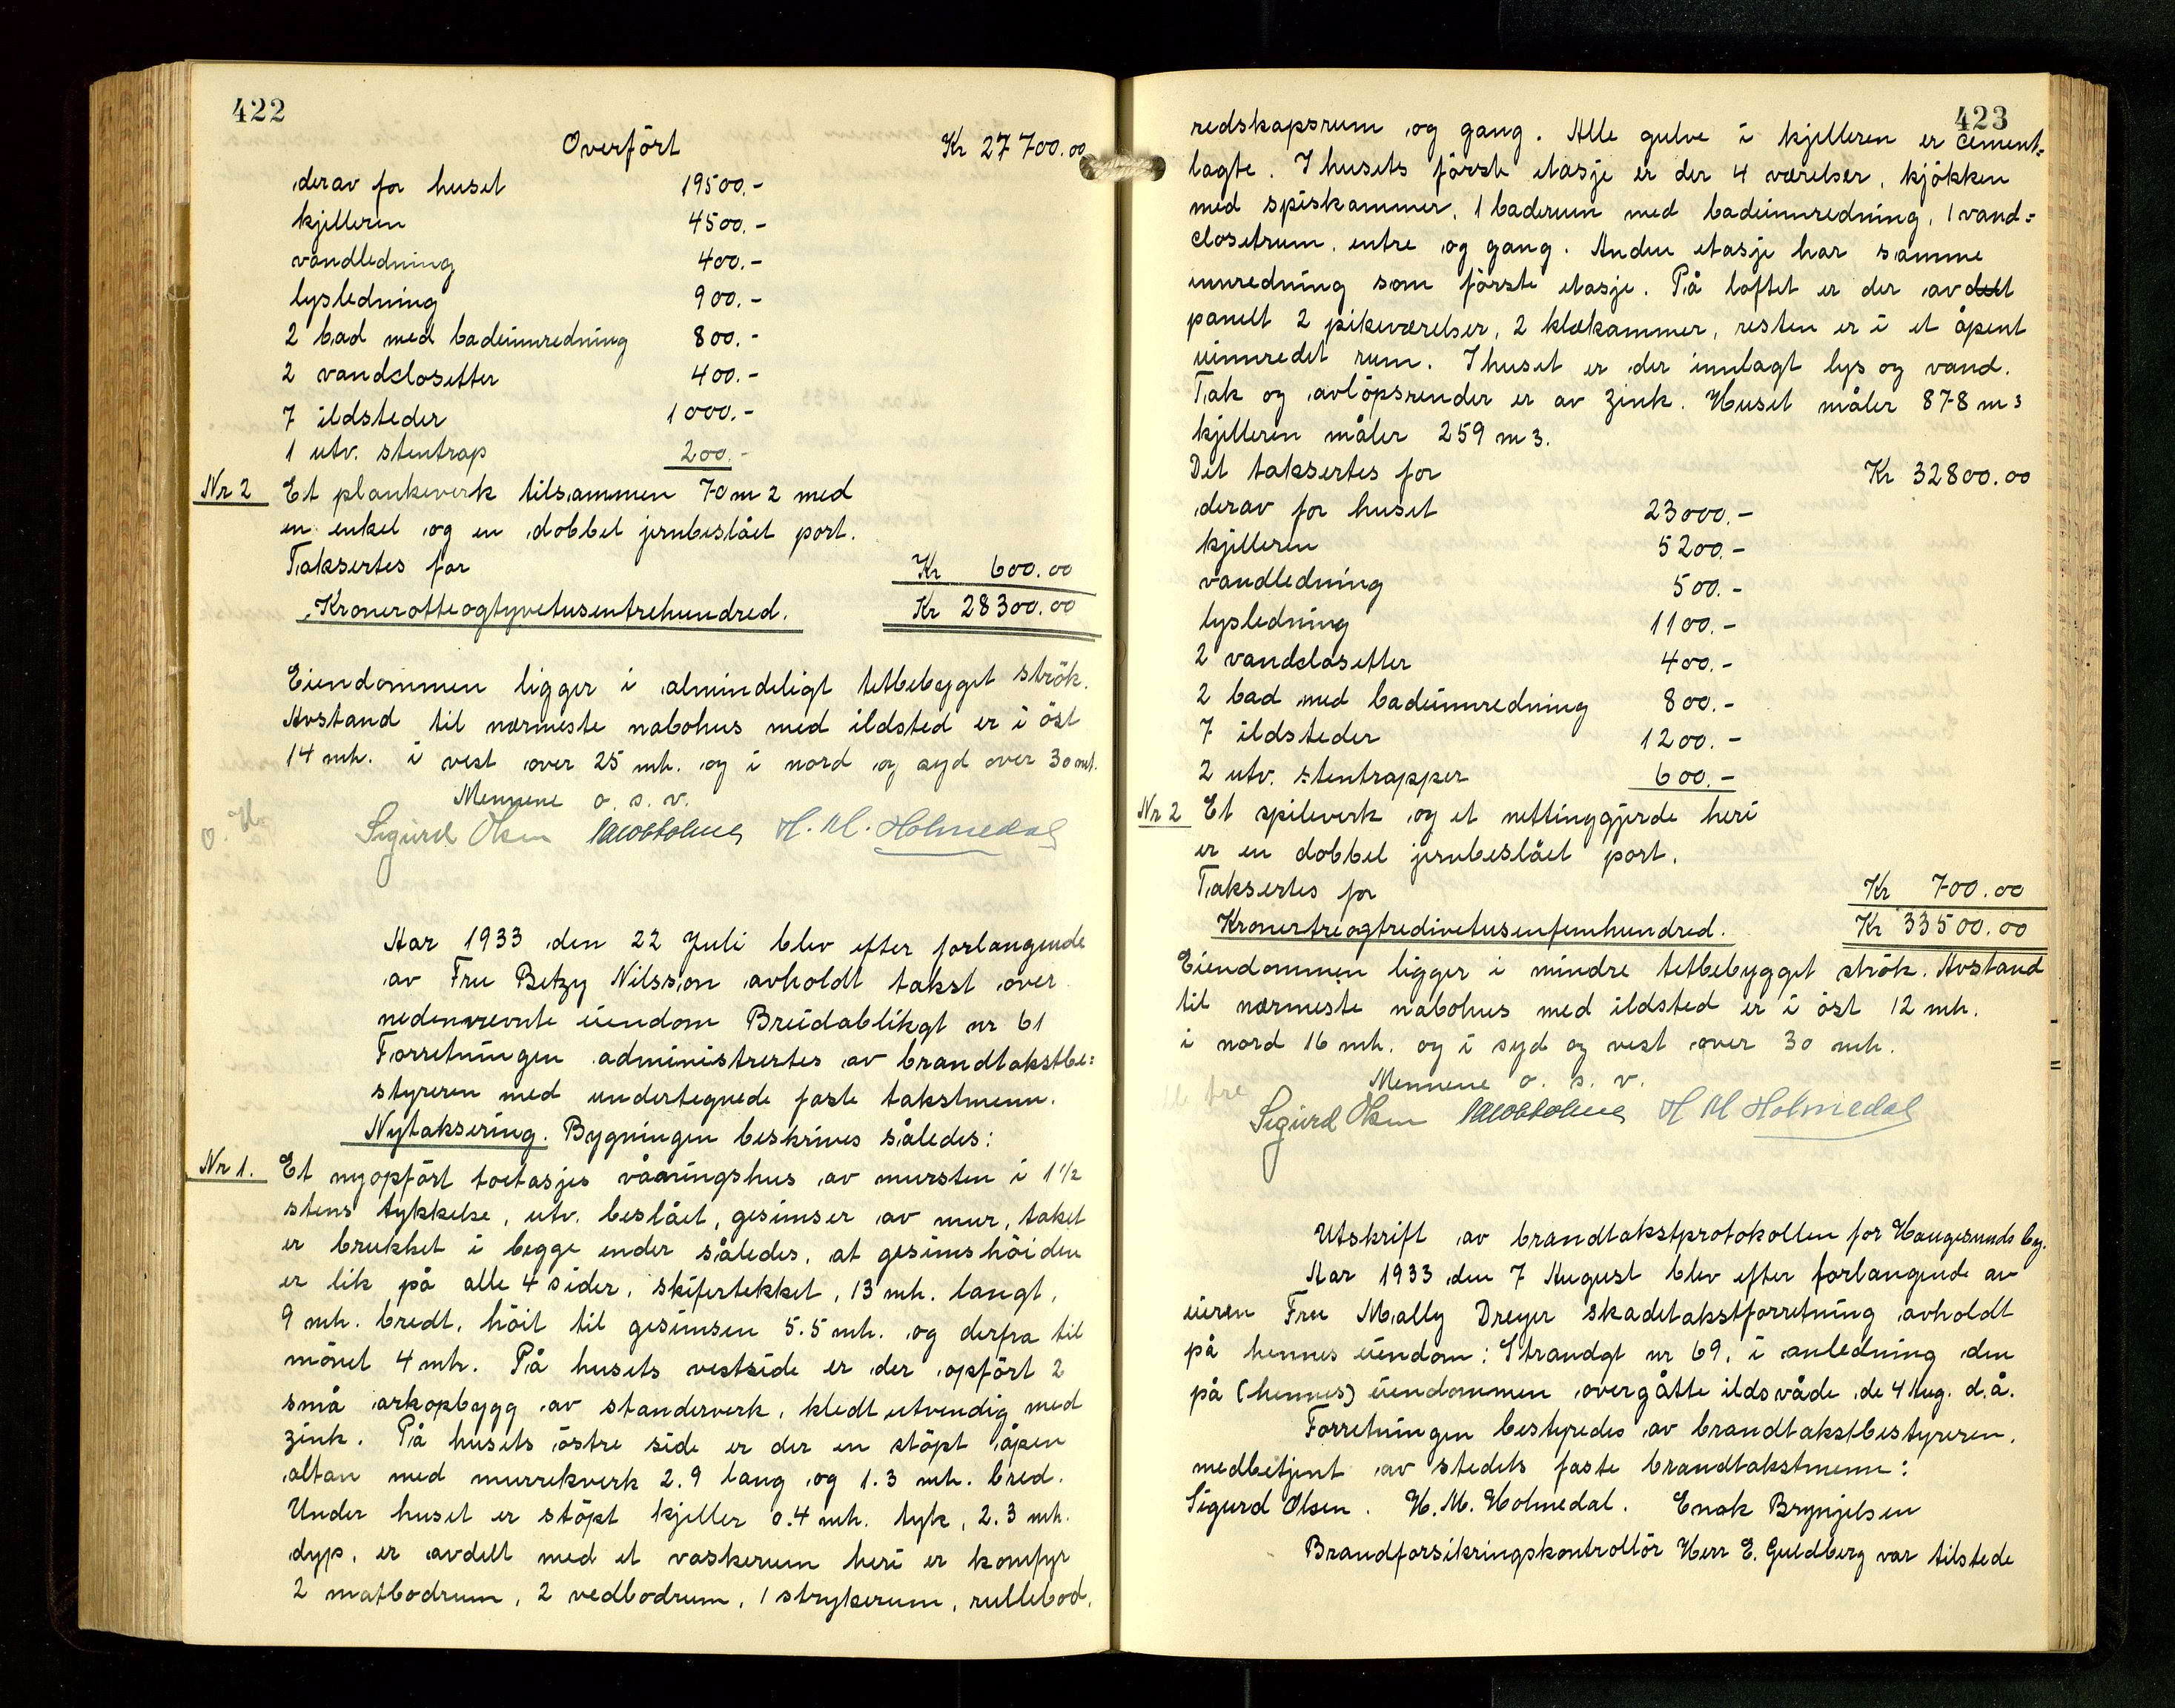 422
Overført Kr 27700.00
derav for huset 19500.-
kjelleren 4500.-
vandledning 400.-
lysledning 900.-
2 bad med badeinnredning 800.-
2 vandclosetter 400.-
7 ildsteder 1000.-
1 utv. stentrap 200.-
Nr 2 Et plankeverk tilsammen 70 m2 med
en enkel og en dobbel jernbeslået port.
Taksertes for Kr 600.00
Kronerotteogtyvetusentrehundred. Kr 28300.00
Eiendommen ligger i almindeligt tetbebygget strök.
Avstand til nærmeste nabohus med ildsted er i öst
14 mtr. i vest over 25 mtr. og i nord og syd over 30 mt.
Mennene o. s. v.
Sigurd Olsen H. M. Holmedal
Aar 1933 den 22 Juli blev efter forlangende
av Fru Betzy Nilsson avholdt takst over
nedennevnte eiendom Breidablikgt nr 61
Forretningen administrertes av brandtakstbe=
styreren med undertegnede faste takstmenn.
Nytaksering. Bygningen beskrives således:
Nr 1. Et nyopfört toetasjes våningshus av mursten i 1 1/2
stens tykkelse, utv. beslået, gesimser av mur, taket
er brukket i begge ender således, at gesimshöiden
er lik på alle 4 sider, skifertekket, 13 mtr. langt,
9 mtr. bredt, höit til gesimsen 5.5 mtr. og derfra til
mönet 4 mtr. På husets vestside er der opfört 2
små arkopbygg av standerverk, kledt utvendig med
zink. På husets östre side er der en stöpt åpen
altan med murrekverk 2.9 lang og 1.3 mtr. bred.
Under huset er stöpt kjeller 0.4 mtr. tyk, 2.3 mtr.
dyp, er avdelt med et vaskerum heri er komfyr
2 matbodrum, 2 vedbodrum, 1 strykerum, rullebod,
423
redskapsrum og gang. Alle gulve i kjelleren er cement=
lagte. I husets förste etasje er der 4 værelser, kjökken
med spiskammer, 1 baderum med badeinnredning, 1 vand=
closetrum, entre og gang. Anden etasje har samme
innredning som förste etasje. På loftet er der avdelt
panelt 2 pikeværelser, 2 klækammer, resten er i et åpent
uinnredet rum. I huset er der innlagt lys og vand.
Tak og avlöpsrender er av zink. Huset måler 878 m3
kjelleren måler 259 m3.
Det taksertes for Kr 32800.00
derav for huset 23000.-
kjelleren 5200.-
vandledning 500.-
lysledning 1100.-
2 vandclosetter 400.-
2 bad med badeinnredning 800.-
7 ildsteder 1200.-
2 utv. stentrapper 600.-
Nr 2 Et spileverk og et nettinggjerde heri
er en dobbel jernbeslået port.
Taksertes for Kr 700.00
Kronertreogtredivetusenfemhundred. Kr 33500.00
Eiendommen ligger i mindre tetbebygget strök. Avstand
til nærmeste nabohus med ildsted er i öst 12 mtr.
i nord 16 mtr. og i syd og vest over 30 mtr.
Mennene o. s. v.
Sigurd Olsen H M Holmedal
Utskrift av brandtakstprotokollen for Haugesunds by.
Aar 1933 den 7 August blev efter forlangende av
eieren Fru Mally Dreyer skadetakstforretning avholdt
på hennes eiendom: Strandgt nr 69, i anledning den
på (hennes) eiendommen overgåtte ildsvåde de 4 Aug. d.å.
Forretningen bestyredes av brandtakstbestyreren,
medbetjent av stedets faste brandtakstmenn:
Sigurd Olsen. H. M. Holmedal. Enok Brynjelsen
Brandforsikringskontrollör Herr E. Guldberg var tilstede